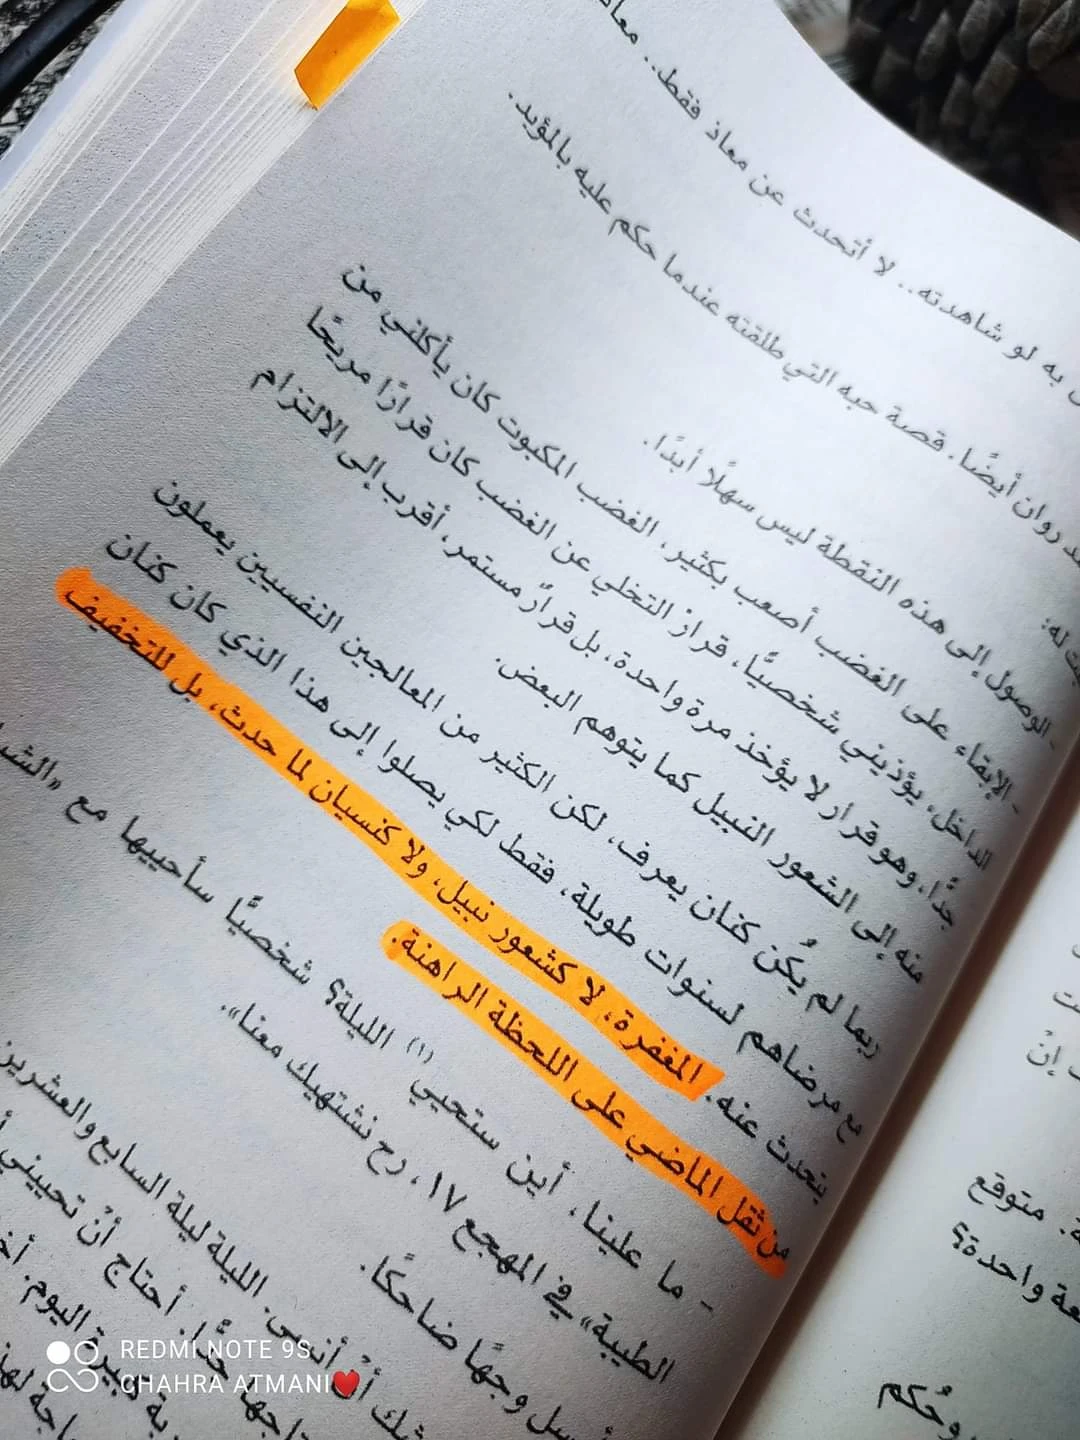 به لو شاهدته.. لا أتحدث عن معاذ فقط.. معاذ
روان أيضًا. قصة حبه التي طلقته عندما حكم عليه بالمؤبد.
له:
- الوصول إلى هذه النقطة ليس سهلًا أبدًا.
- الإبقاء على الغضب أصعب بكثير، الغضب المكبوت كان يأكلني من
الداخل، يؤذيني شخصيًّا، قرار التخلي عن الغضب كان قرارًا مريحًا
جدًّا، وهو قرار لا يؤخذ مرة واحدة، بل قرارٌ مستمر، أقرب إلى الالتزام
منه إلى الشعور النبيل كما يتوهم البعض.
ربما لم يكُن كنان يعرف، لكن الكثير من المعالجين النفسيين يعملون
مع مرضاهم لسنوات طويلة، فقط لكي يصلوا إلى هذا الذي كان كنان
يتحدث عنه. المغفرة، لا كشعور نبيل، ولا كنسيان لما حدث، بل للتخفيف
من ثقل الماضي على اللحظة الراهنة.
- ما علينا، أين ستحيي (١) الليلة؟ شخصيًّا سأحييها مع «الشباب
الطيبة» في المهجع ١٧، رح نشتهيك معنا».
وجهًا ضاحكًا.
أنْ أنسى. الليلة ليلة السابع والعشرين
جدًّا. أحتاج أنْ تحييني
كبيرة اليوم.
إنْ
متوقع
واحدة؟
وحُكم
REDMI NOTE 9S
CHAHRA ATMANI♥